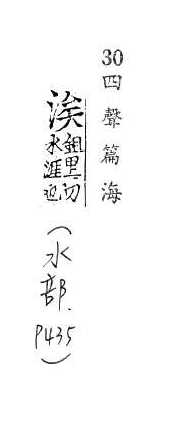 30 四聲篇海
涘 鉏里切
水涯也
(水部. P435)